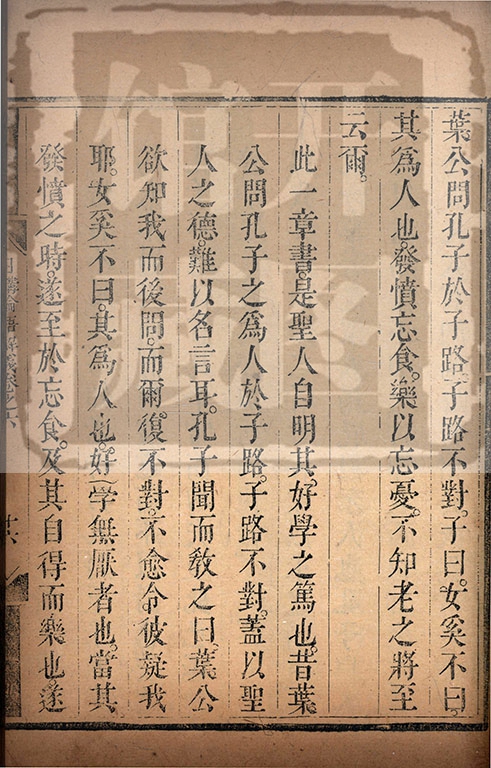 葉公問孔子於子路。子路不對。子曰。女奚不曰。
其為人也。發憤忘食。樂以忘憂。不知老之將至
云爾。
此一章書。是聖人自明其好學之篤也。昔葉
公問孔子之為人於子路。子路不對。蓋以聖
人之德。難以名言耳。孔子聞而教之曰。葉公
欲知我而後問。而爾復不對。不愈令彼疑我
耶。女奚不曰。其為人也。好學無厭者也。當其
發憤之時。遂至於忘食。及其自得而樂也。遂